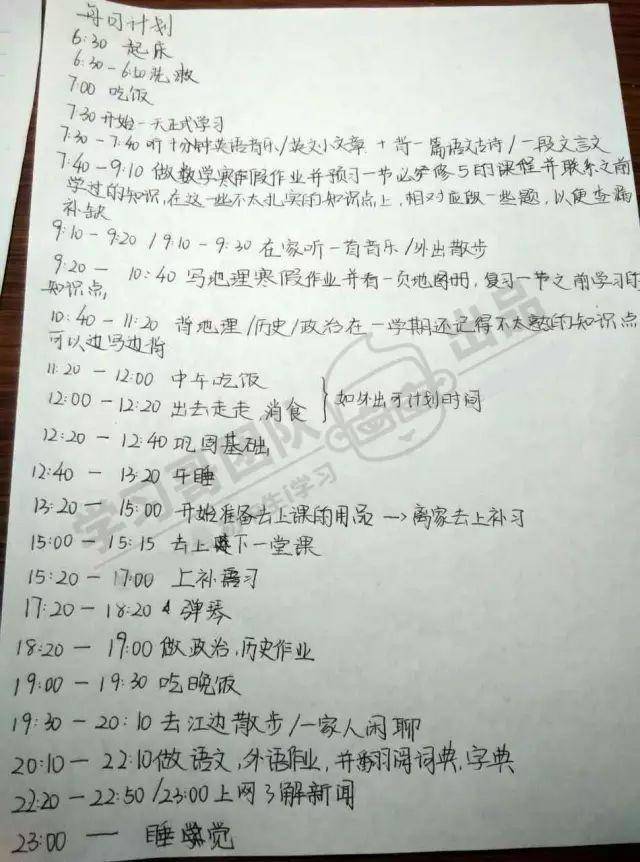 每日计划
6:30 起床
6:30-6:50洗漱
7:00 吃饭
7:30 开始一天正式学习
7:30-7:40 听十分钟英语音乐/英文小文章 + 背一篇语文古诗/一段文言文
7:40-9:10 做数学寒假作业并预习一节必修5的课程并联系之前
学过的知识,在这一些不太扎实的知识点上,相对应做一些题,以便查漏
补缺
9:10-9:20 /9:10-9:30 在家听一首音乐/外出散步
9:20- 10:40 写地理寒假作业并看一页地图册,复习一节之前学习的
知识点,
10:40-11:20 背地理/历史/政治在一学期还记得不太熟的知识点
可以边写边背
11:20 - 12:00 中午吃饭
12:00 - 12:20 出去走走,消食 } 如外出可计划时间
12:20 - 12:40 巩固基础
12:40 - 13:20 午睡
13:20 - 15:00 开始准备去上课的用品 → 离家去上补习
15:00 - 15:15 去上下一堂课
15:20 - 17:00 上补习
17:20 - 18:20 弹琴
18:20 - 19:00 做政治,历史作业
19:00 - 19:30 吃晚饭
19:30 - 20:10 去江边散步/一家人闲聊
20:10 - 22:10做语文,外语作业,并翻阅词典,字典
22:20 - 22:50 /23:00上网了解新闻
23:00 — 睡觉
学习哥团队 出品
学生学习